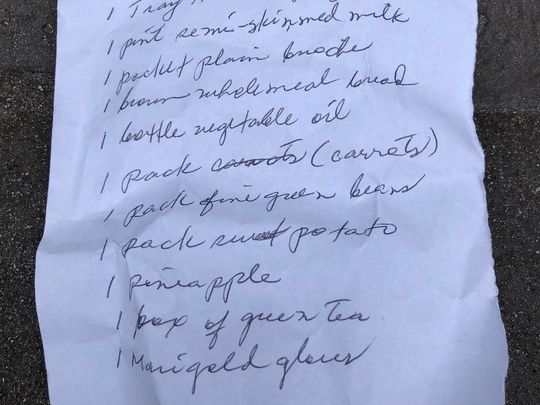 1 Tray
1 pint semi-skimmed milk
1 packet plain brioche
1 brown wholemeal bread
1 bottle vegetable oil
1 pack carrots (carrots)
1 pack fine green beans
1 pack sweet potato
1 pineapple
1 box of green Tea
1 Marigold gloves